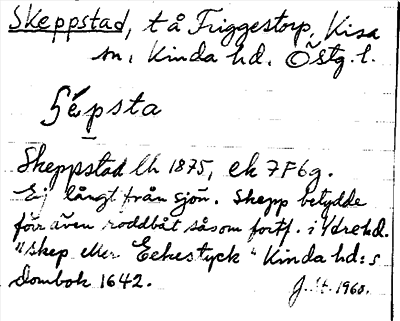 Skeppstad, t å Friggestorp, Kisa
sn, Kinda hd. Östg. l.
Sépsta
Skeppstad lh 1875, ek 7F6g.
Ej långt från sjön. Skepp betydde
förr även roddbåt såsom fortf. i Ydre hd.
"skep eller Eekestyck" Kinda hd:s
dombok 1642.
1960.